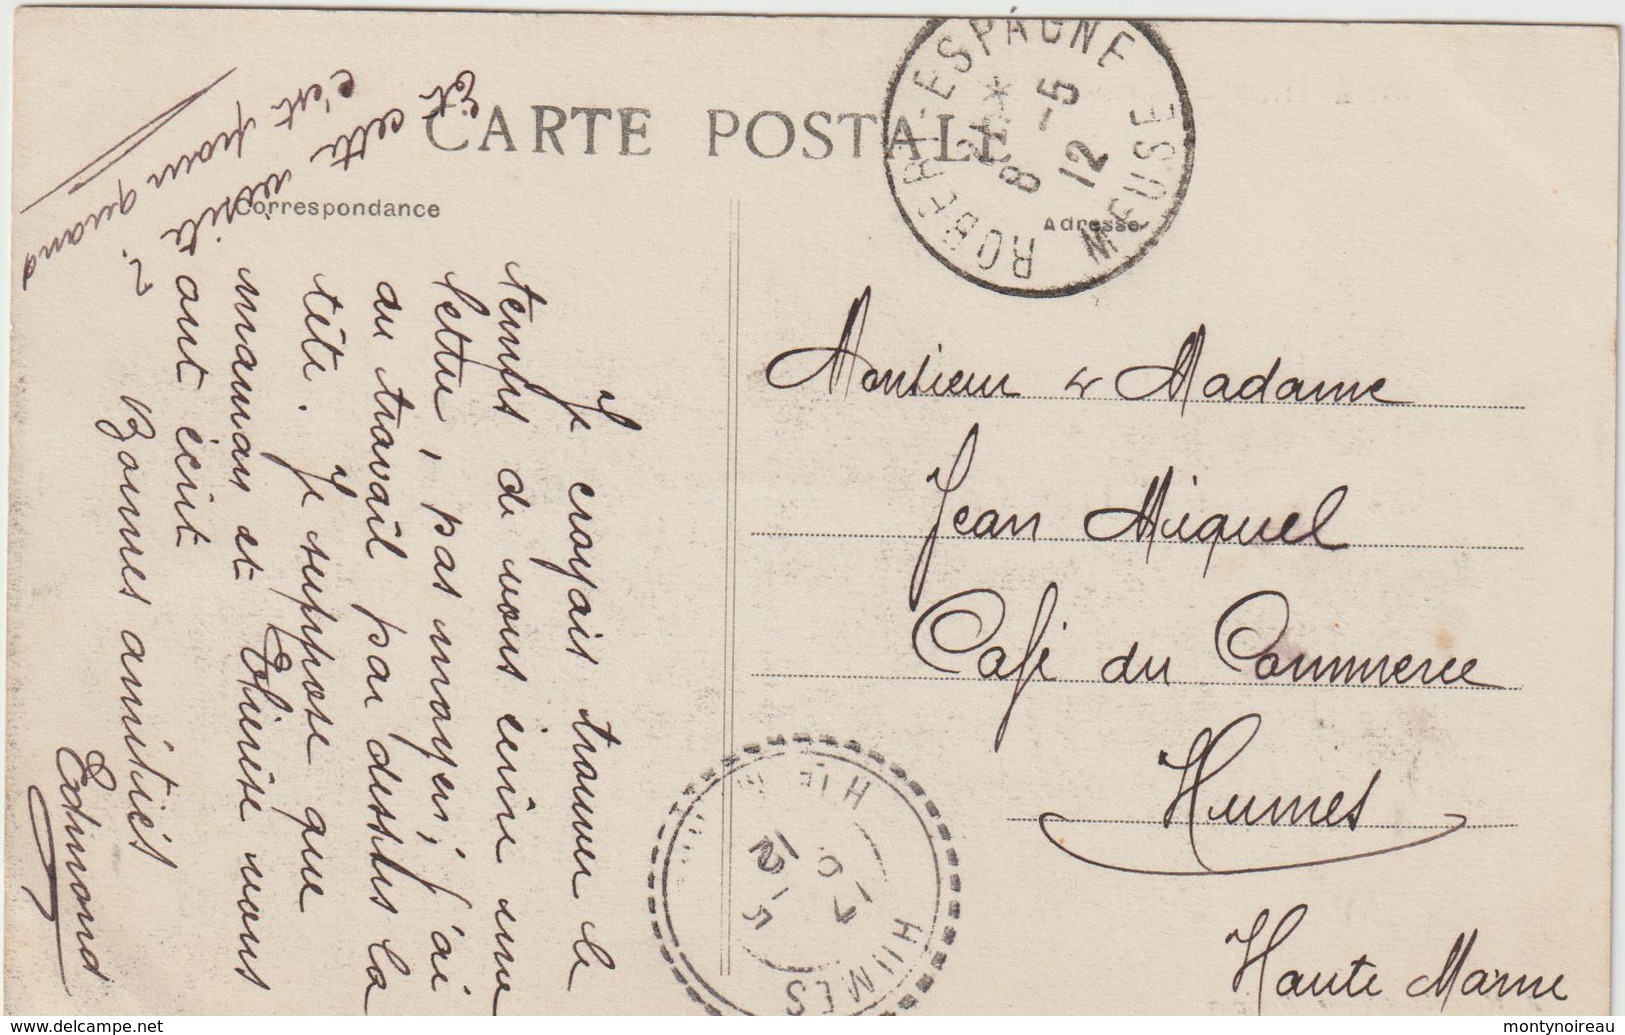 CARTE POSTALE
Correspondance
Adresse
ROBERT-ESPAGNE
MEUSE
8 -5
12
Je croyais trouver le
temps de vous écrire une
lettre, pas moyen; j'ai
du travail par dessus la
tête. Je suppose que
maman et vous
ont écrit
Bonnes amitiés
Edmond
Et cette visite
c'est pour quand
?
Monsieur & Madame
Jean Miquel
Café du Commerce
Humes
Haute Marne
HUMES
HTE M
17
5
12
www.delcampe.net
montynoireau